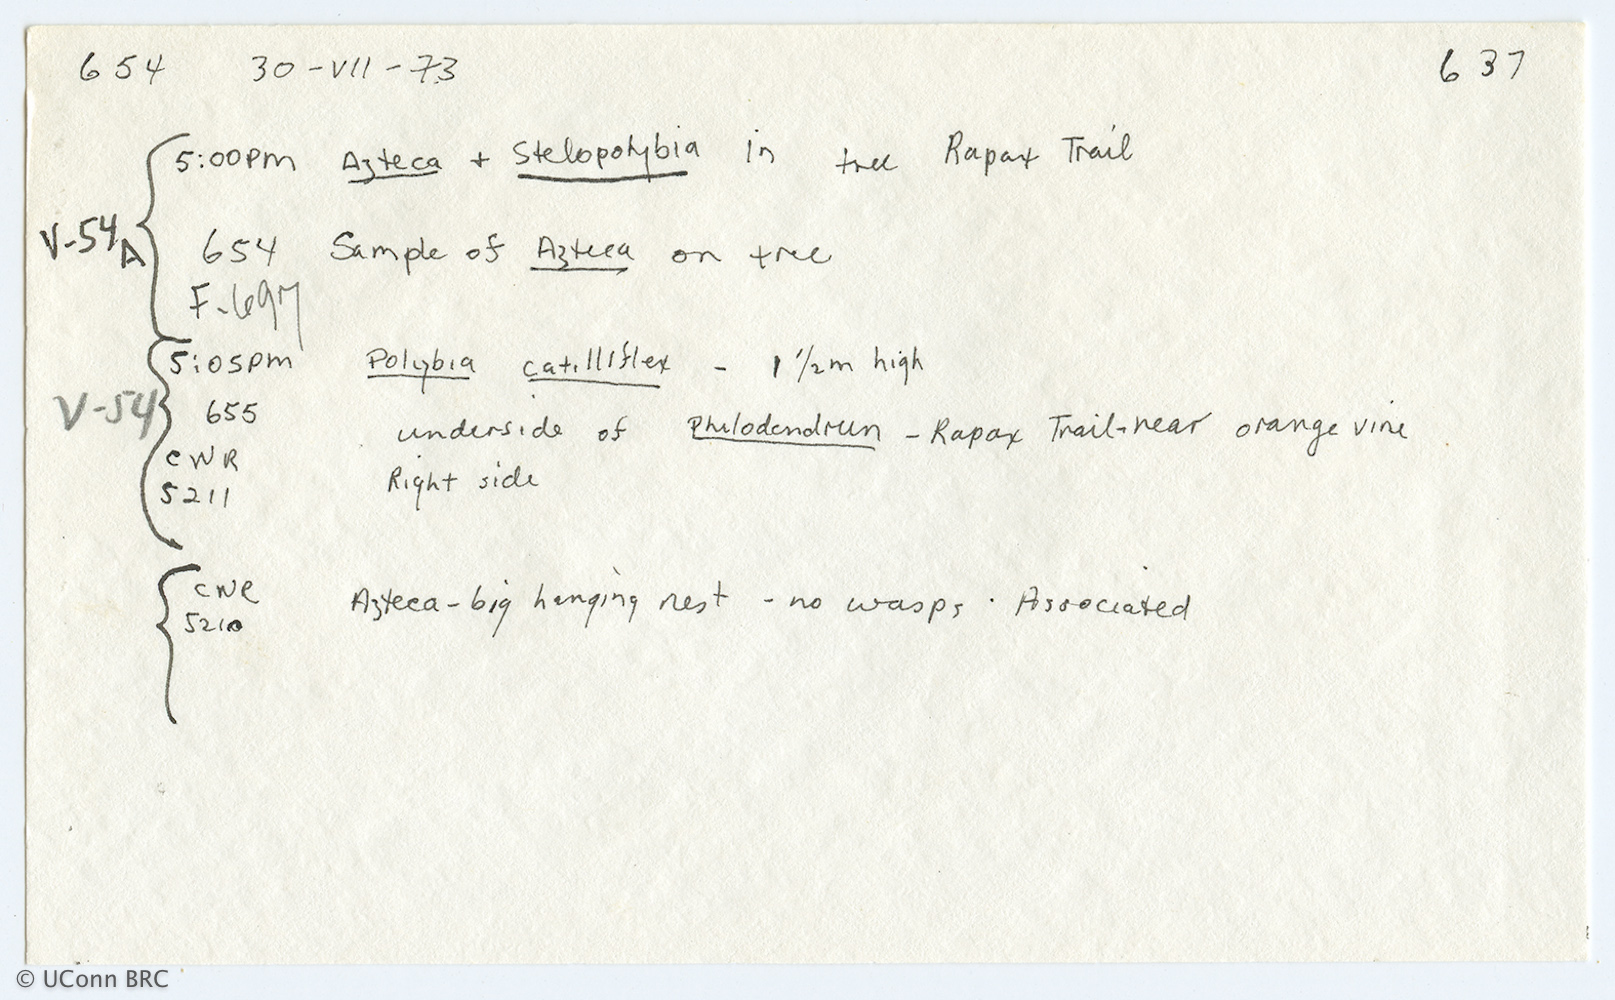 654 30-VII-73 637
5:00pm Azteca + Stelopolybia in tree Rapax Trail
V-54A
654 Sample of Azteca on tree
F-697
5:05pm Polybia catillifex - 1 1/2m high
V-54
655 underside of Philodendron - Rapax Trail-near orange vine
CWR Right side
5211
CWR Azteca-big hanging nest - no wasps · Associated
5210
© UConn BRC